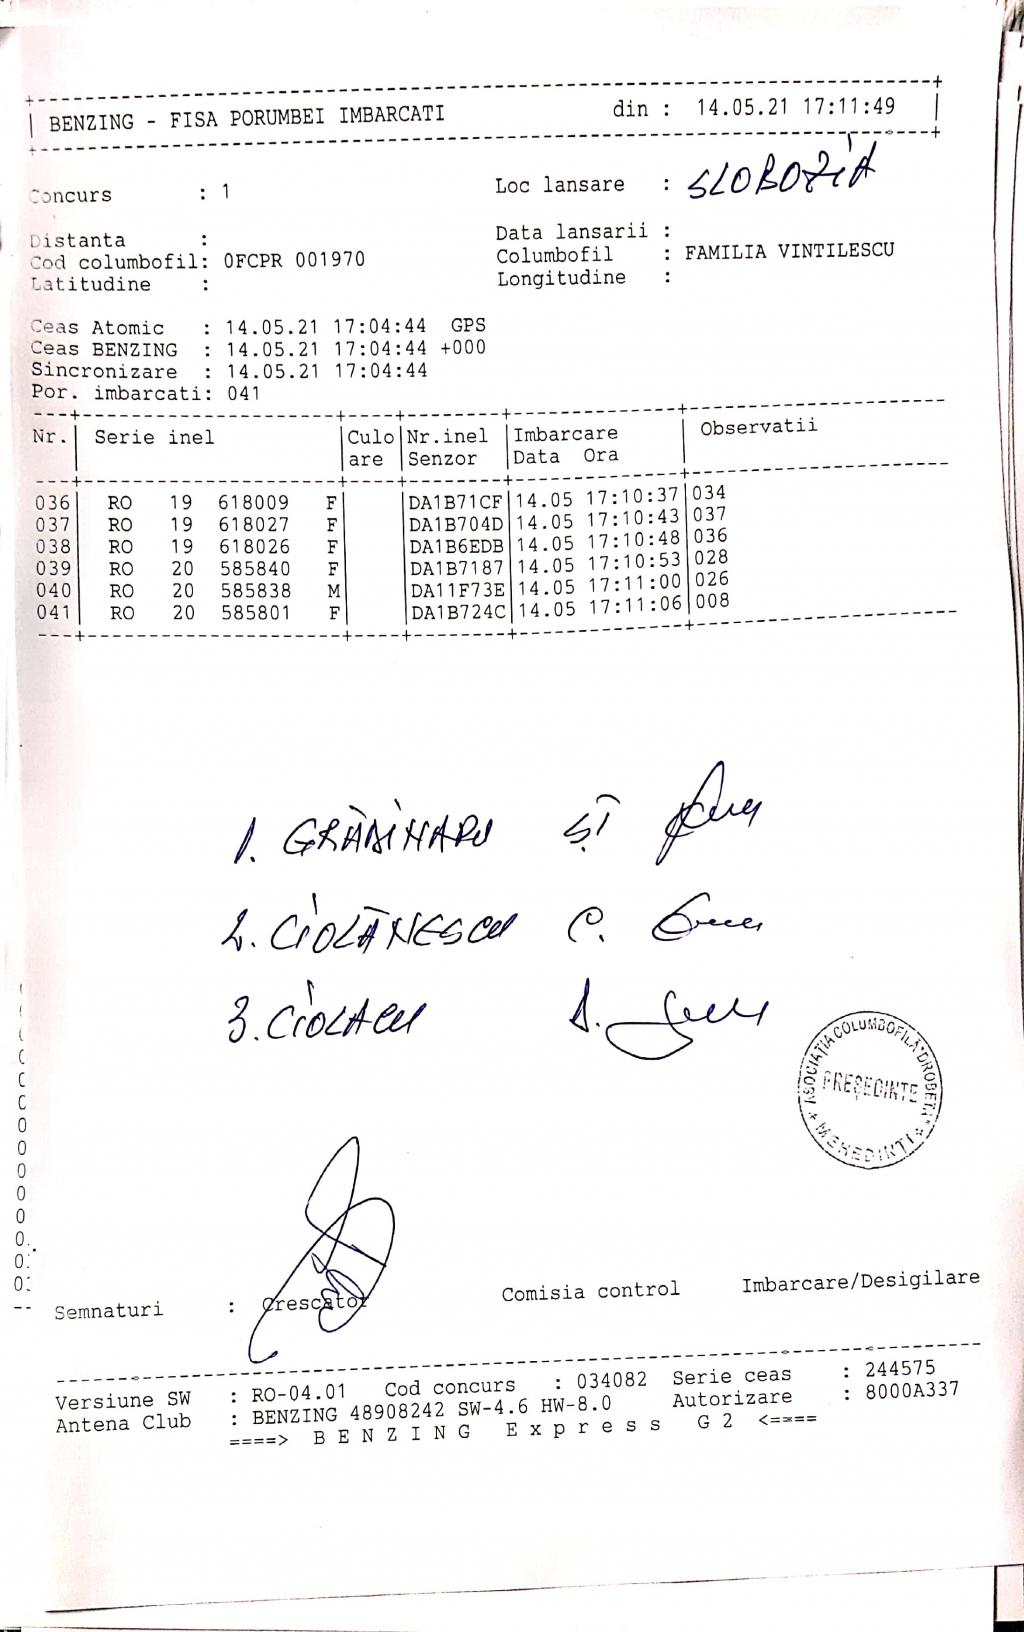 BENZING - FISA PORUMBEI IMBARCATI din : 14.05.21 17:11:49
Concurs : 1 Loc lansare : SLOBOZIA
Distanta : Data lansarii :
Cod columbofil: 0FCPR 001970 Columbofil : FAMILIA VINTILESCU
Latitudine : Longitudine :
Ceas Atomic : 14.05.21 17:04:44 GPS
Ceas BENZING : 14.05.21 17:04:44 +000
Sincronizare : 14.05.21 17:04:44
Por. imbarcati: 041
Nr. Serie inel Culo Nr.inel Imbarcare Observatii
are Senzor Data Ora
036 RO 19 618009 F DA1B71CF 14.05 17:10:37 034
037 RO 19 618027 F DA1B704D 14.05 17:10:43 037
038 RO 19 618026 F DA1B6EDB 14.05 17:10:48 036
039 RO 20 585840 F DA1B7187 14.05 17:10:53 028
040 RO 20 585838 M DA11F73E 14.05 17:11:00 026
041 RO 20 585801 F DA1B724C 14.05 17:11:06 008
1. GRĂDINARU ȘT
2. CIOLĂNESCU C.
3. CIOLACU D.
ASOCIAȚIA COLUMBOFILĂ "DROBETA"
PREȘEDINTE
* MEHEDINTI *
Semnaturi : Crescator Comisia control Imbarcare/Desigilare
Versiune SW : RO-04.01 Cod concurs : 034082 Serie ceas : 244575
Antena Club : BENZING 48908242 SW-4.6 HW-8.0 Autorizare : 8000A337
====> B E N Z I N G E x p r e s s G 2 <====